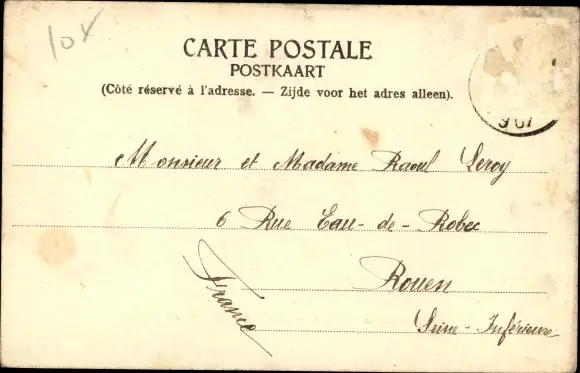 10x
CARTE POSTALE
POSTKAART
(Côté réservé à l'adresse. — Zijde voor het adres alleen).
907
Monsieur et Madame Raoul Leroy
6 Rue Eau-de-Robec
Rouen
France
Seine-Inférieure